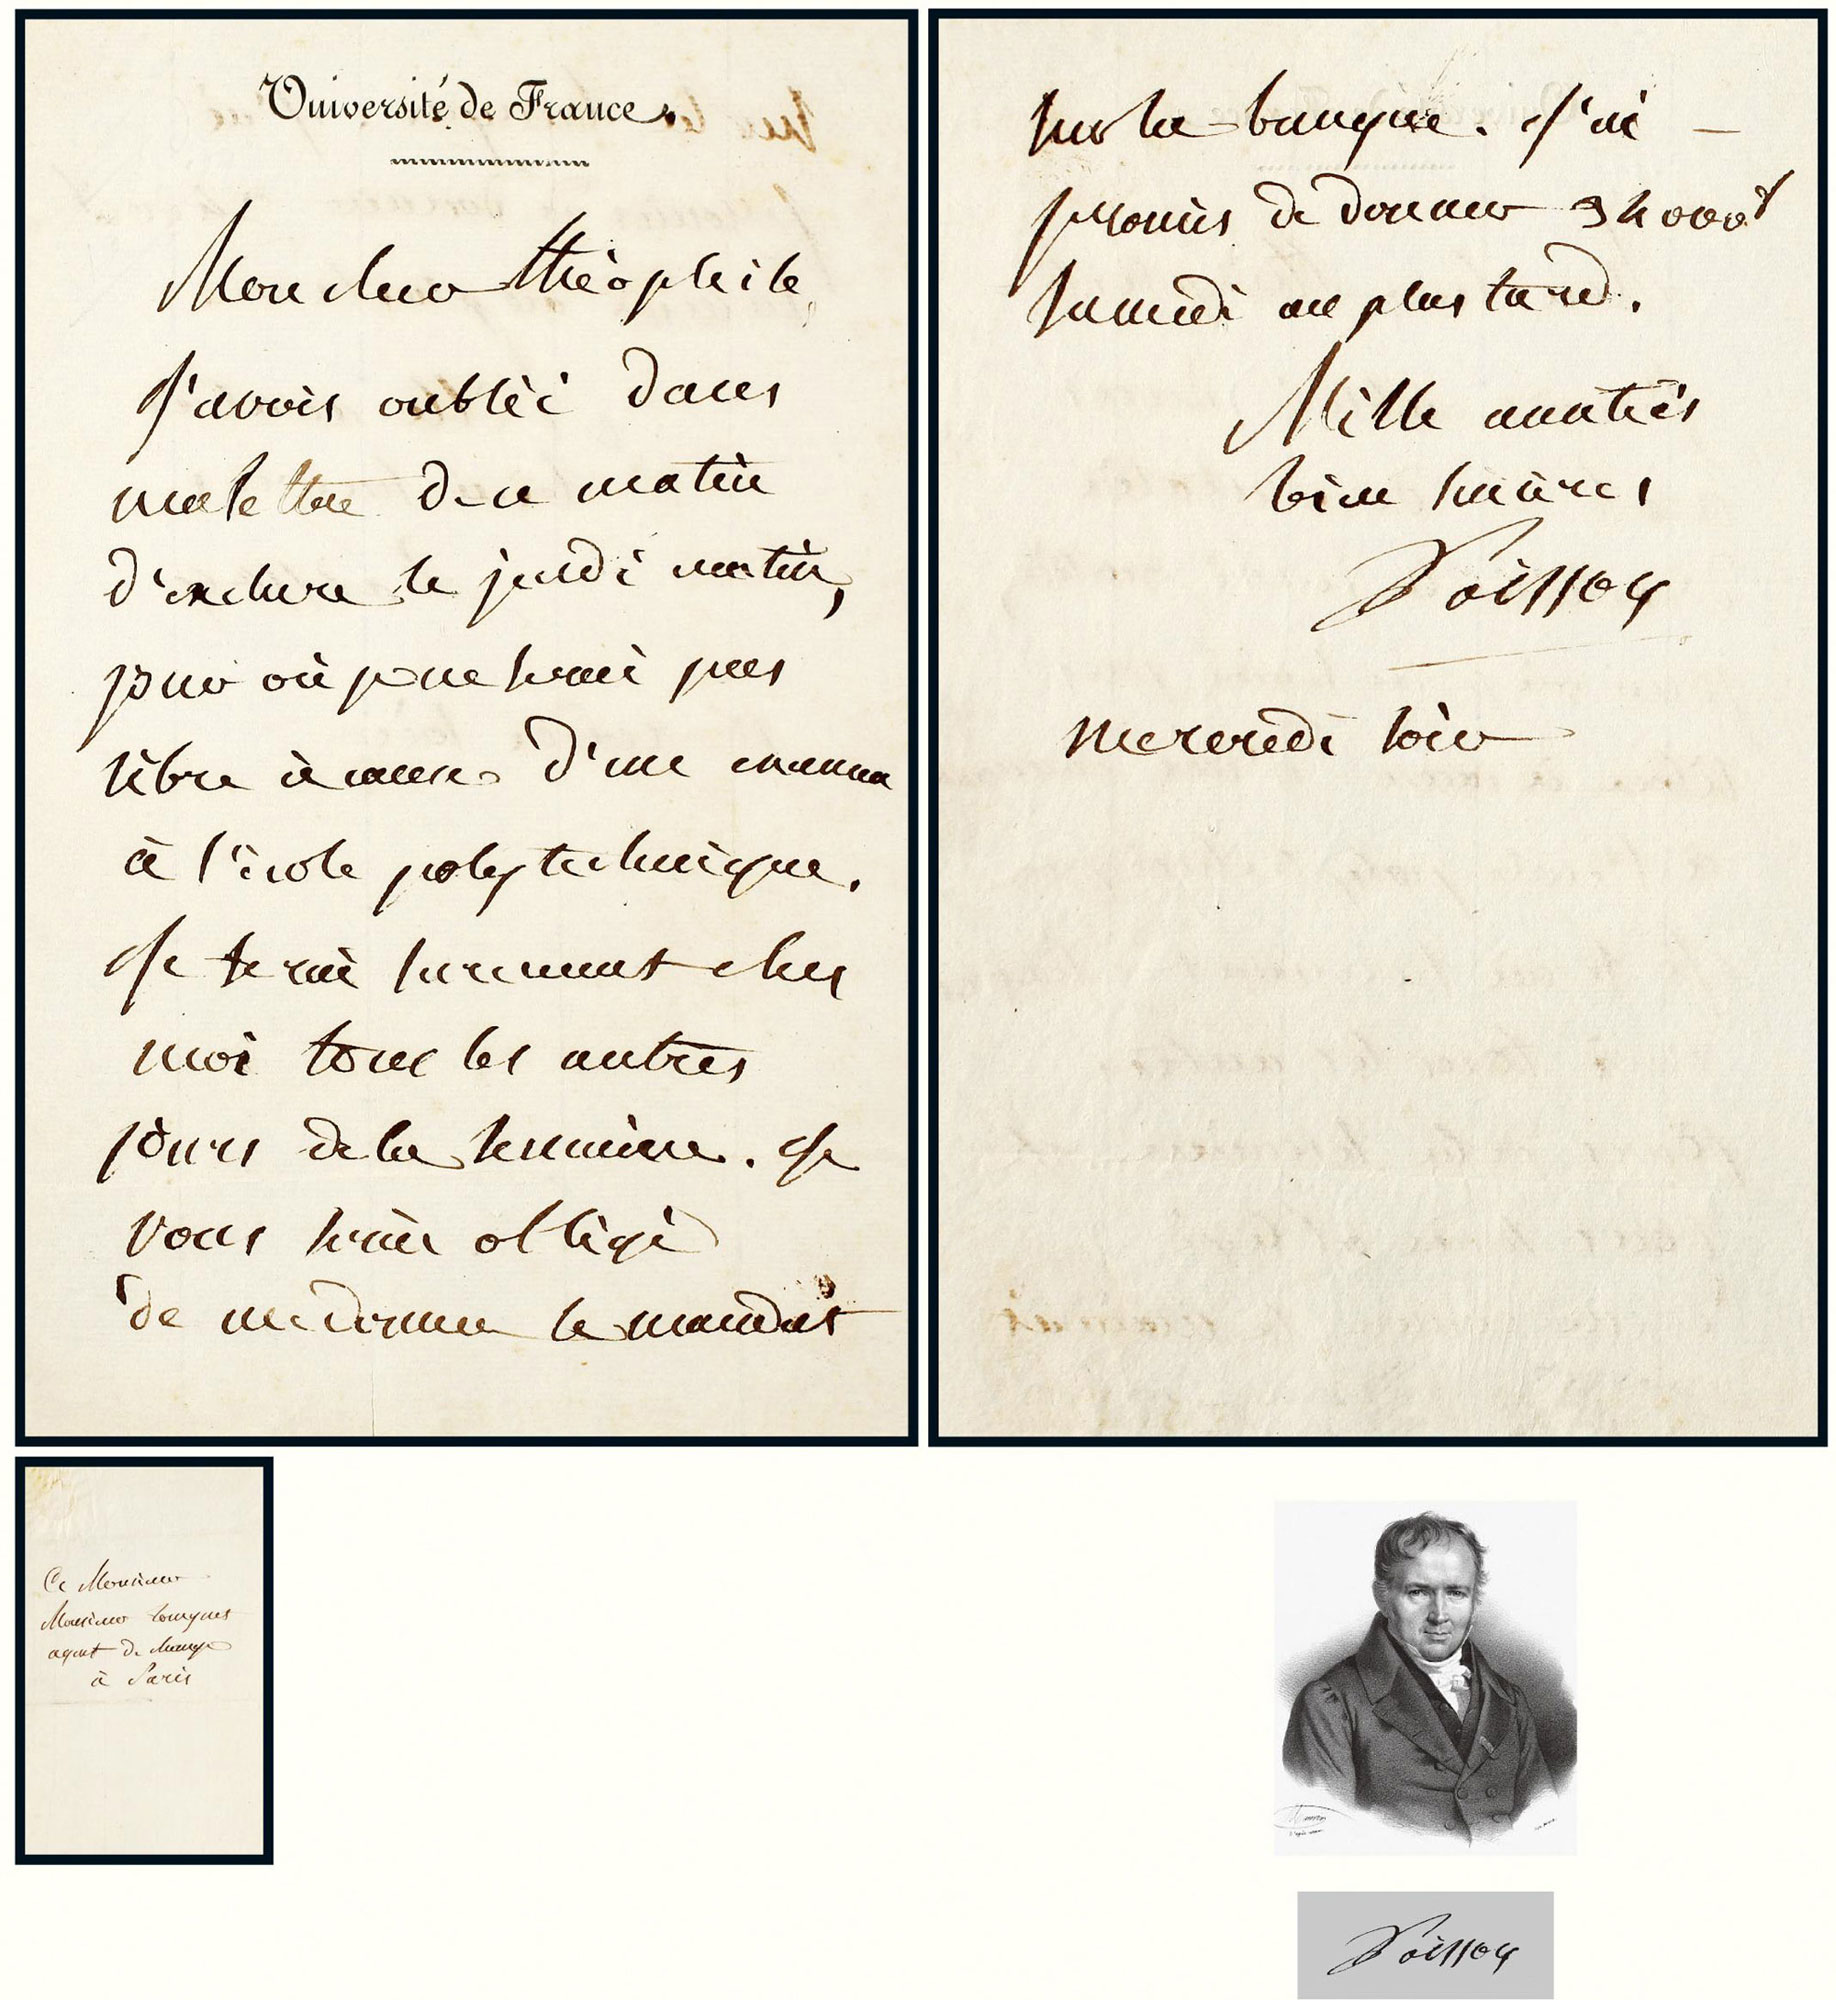 Université de France.
Mon cher théophile,
J'avois oublié dans
ma lettre de ce matin
d'exclure le jeudi matin,
jour où je ne serai pas
libre à cause d'une examen
à l'école polytechnique.
Je serai surement chez
moi tous les autres
jours de la semaine. Je
vous serai obligé
de me donner le mandat
sur la banque. J'ai
promis de donner 34000f
samedi au plus tard.
Mille amitiés
bien sincères
Poisson
mercredi soir
a Monsieur
Monsieur
agent de change
à Paris
Poisson